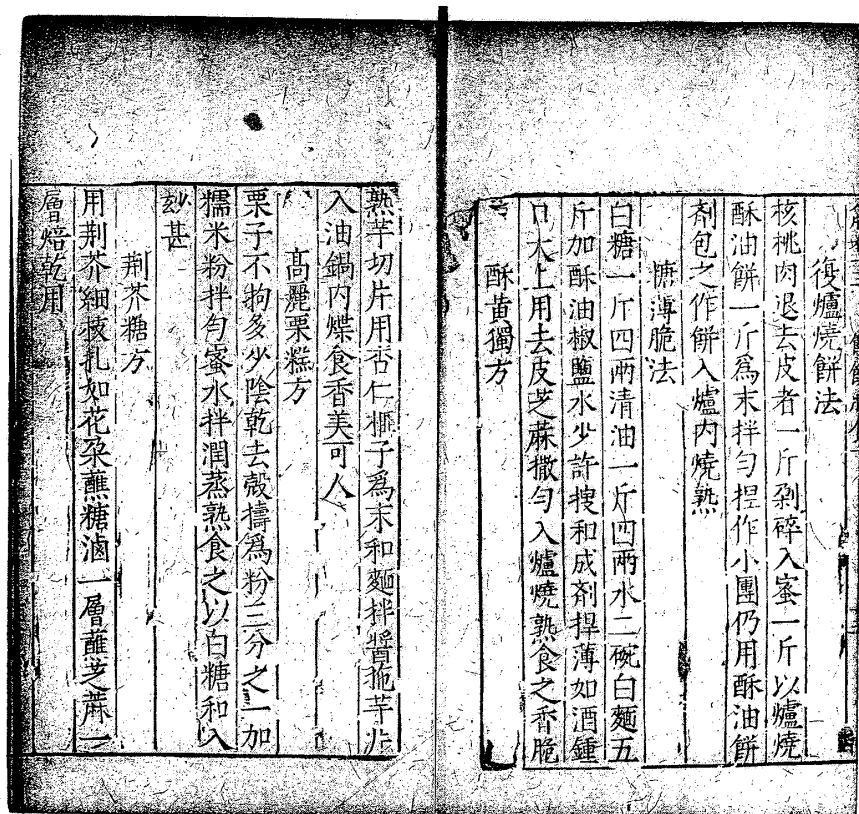 復爐燒餅法
核桃肉退去皮者一斤剁碎入蜜一斤以爐燒
酥油餅一斤爲末拌勻揑作小團仍用酥油餅
劑包之作餅入爐內燒熟
糖薄脆法
白糖一斤四兩清油一斤四兩水二碗白麵五
斤加酥油椒鹽水少許搜和成劑捍薄如酒鍾
口大上用去皮芝蔴撒勻入爐燒熟食之香脆
酥黃獨方
熟芋切片用杏仁榧子爲末和麵拌醬拖芋片
入油鍋內煠食香美可人
高麗栗糕方
栗子不拘多少陰乾去殼擣爲粉三分之一加
糯米粉拌勻蜜水拌潤蒸熟食之以白糖和入
玅甚
荆芥糖方
用荆芥細枝扎如花朶蘸糖滷一層蘸芝蔴一
層焙乾用